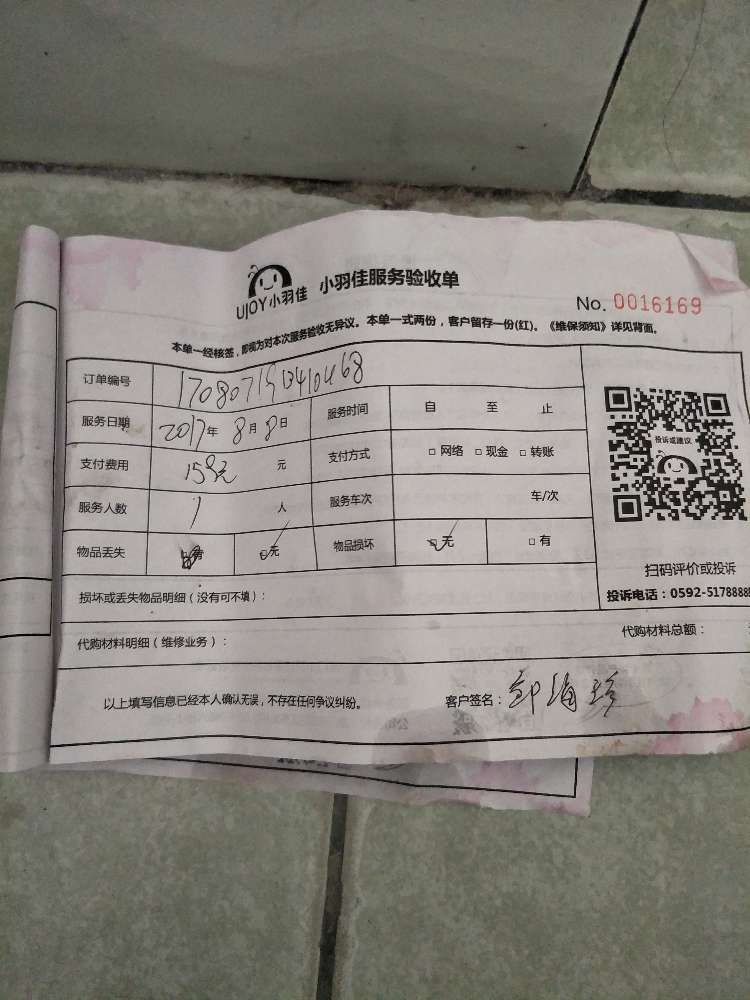 UJOY小羽佳 小羽佳服务验收单
No. 0016169
本单一经核签，即视为对本次服务验收无异议。本单一式两份，客户留存一份(红)。《维保须知》详见背面。
订单编号
服务日期 2017年 8月 8日 服务时间 自 至 止
支付费用 158元 元 支付方式 □ 网络 □ 现金 □ 转账
服务人数 1 人 服务车次 车/次
物品丢失 □无 物品损坏 □无 □ 有
投诉或建议
扫码评价或投诉
投诉电话：0592-5178888
损坏或丢失物品明细（没有可不填）：
代购材料明细（维修业务）： 代购材料总额：
以上填写信息已经本人确认无误，不存在任何争议纠纷。 客户签名：